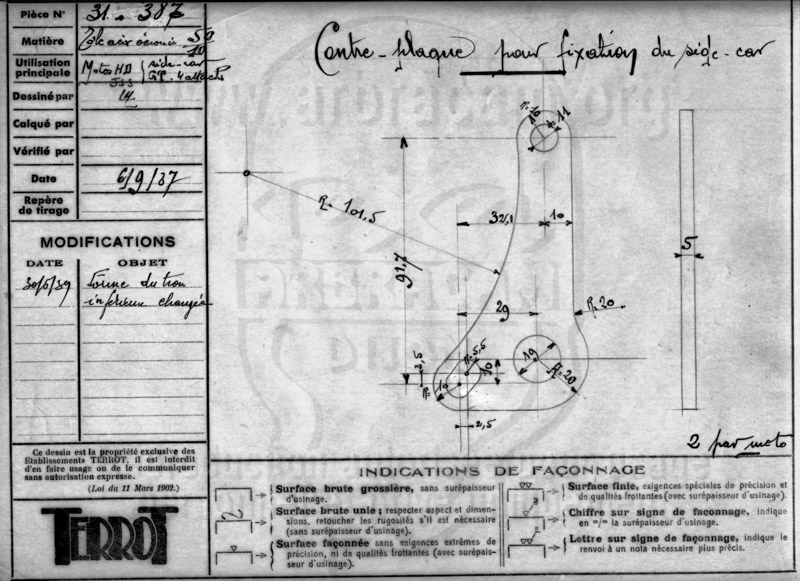 Pièce N° 31.387
Matière Tôle acier 50/10
Utilisation principale Motos HD side-car
GT. 4 attaches
Dessiné par
Calqué par
Vérifié par
Date 6/9/37
Repère de tirage
MODIFICATIONS
DATE OBJET
30/6/39 Forme du trou
inférieur changée
Ce dessin est la propriété exclusive des
Etablissements TERROT, il est interdit
d'en faire usage ou de le communiquer
sans autorisation expresse.
(Loi du 11 Mars 1902.)
TERROT
Contre-plaque pour fixation du side-car
R=10
11
R=101,5
32,1
10
91,7
5
29
R=20
3,5
R=5,5
10
19
R=20
R=10
2,5
2 par moto
INDICATIONS DE FAÇONNAGE
Surface brute grossière, sans surépaisseur
d'usinage.
Surface brute unie ; respecter aspect et dimen-
sions, retoucher les rugosités s'il est nécessaire
(sans surépaisseur d'usinage).
Surface façonnée sans exigences extrêmes de
précision, ni de qualités frottantes (avec surépais-
seur d'usinage).
Surface finie, exigences spéciales de précision et
de qualités frottantes (avec surépaisseur d'usinage).
Chiffre sur signe de façonnage, indique
en =/= la surépaisseur d'usinage.
Lettre sur signe de façonnage, indique le
renvoi à un nota nécessaire plus précis.